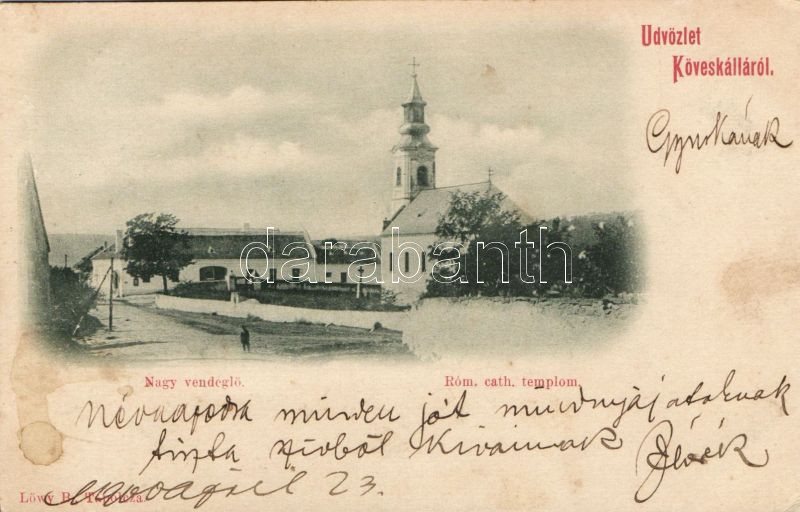 Udvözlet
Köveskálláról.
Gyurkának
darabanth
Nagy vendeglö.
Róm. cath. templom.
Névnapodra minden jót mindnyájatoknak
tiszta szivböl kivánnak
Löwy B. Tapolcza.
april 23.